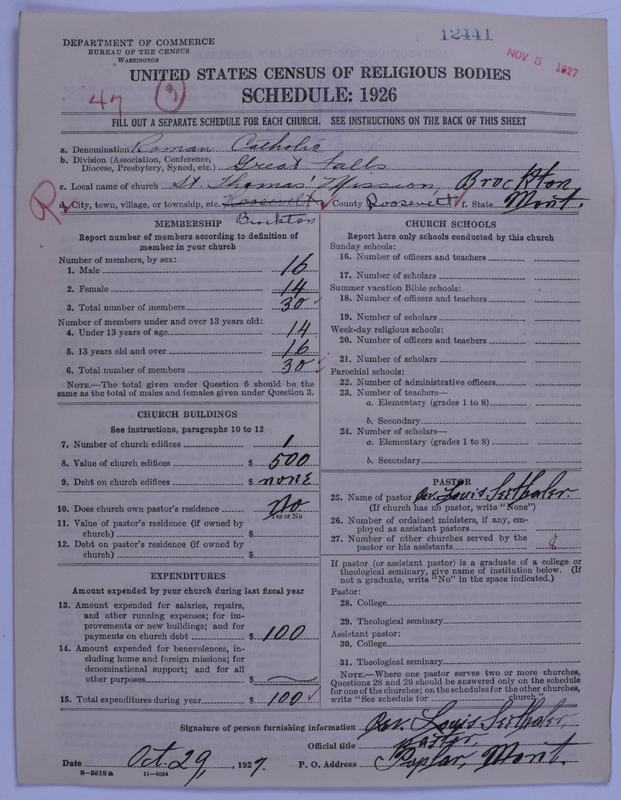 12441
NOV 5 1927
DEPARTMENT OF COMMERCE
BUREAU OF THE CENSUS
WASHINGTON
UNITED STATES CENSUS OF RELIGIOUS BODIES
47 (9)
SCHEDULE: 1926
FILL OUT A SEPARATE SCHEDULE FOR EACH CHURCH. SEE INSTRUCTIONS ON THE BACK OF THIS SHEET
a. Denomination Roman Catholic
b. Division (Association, Conference, Diocese, Presbytery, Synod, etc.) Great Falls
c. Local name of church St. Thomas' Mission, Brockton
R d. City, town, village, or township, etc. Roosevelt County Roosevelt f. State Mont.
Brockton
MEMBERSHIP
Report number of members according to definition of
member in your church
Number of members, by sex:
1. Male 16
2. Female 14
3. Total number of members 30
Number of members under and over 13 years old:
4. Under 13 years of age 14
5. 13 years old and over 16
6. Total number of members 30
NOTE.—The total given under Question 6 should be
same as the total of males and females given under Question 3.
CHURCH BUILDINGS
See instructions, paragraphs 10 to 12
7. Number of church edifices 1
8. Value of church edifices $ 500
9. Debt on church edifices $ none
10. Does church own pastor's residence No
Yes or No
11. Value of pastor's residence (if owned by
church) $
12. Debt on pastor's residence (if owned by
church) $
EXPENDITURES
Amount expended by your church during last fiscal year
13. Amount expended for salaries, repairs,
and other running expenses; for im-
provements or new buildings; and for
payments on church debt $ 100
14. Amount expended for benevolences, in-
cluding home and foreign missions; for
denominational support; and for all
other purposes $
15. Total expenditures during year $ 100
CHURCH SCHOOLS
Report here only schools conducted by this church
Sunday schools:
16. Number of officers and teachers
17. Number of scholars
Summer vacation Bible schools:
18. Number of officers and teachers
19. Number of scholars
Week-day religious schools:
20. Number of officers and teachers
21. Number of scholars
Parochial schools:
22. Number of administrative officers
23. Number of teachers—
a. Elementary (grades 1 to 8)
b. Secondary
24. Number of scholars—
a. Elementary (grades 1 to 8)
b. Secondary
PASTOR
25. Name of pastor Rev. Louis Seethaler.
(If church has no pastor, write "None")
26. Number of ordained ministers, if any, em-
ployed as assistant pastors
27. Number of other churches served by the
pastor or his assistants 8
If pastor (or assistant pastor) is a graduate of a college or
theological seminary, give name of institution below. (If
not a graduate, write "No" in the space indicated.)
Pastor:
28. College
29. Theological seminary
Assistant pastor:
30. College
31. Theological seminary
NOTE.—Where one pastor serves two or more churches,
Questions 28 and 29 should be answered only on the schedule
for one of the churches; on the schedules for the other churches,
write "See schedule for church."
Signature of person furnishing information Rev. Louis Seethaler,
Official title pastor,
Date Oct. 29, 1927. P. O. Address Poplar, Mont.
8—5518 a 11—9054